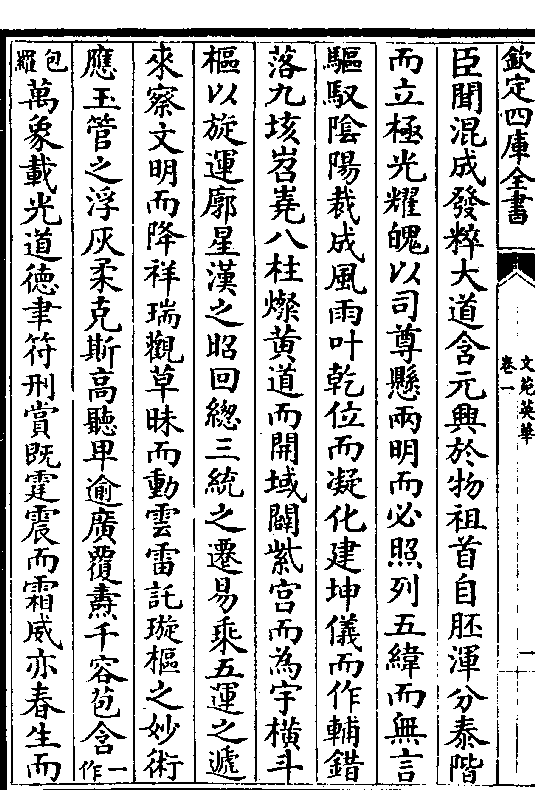 欽定四庫全書
文苑英華
卷一
一
臣聞混成發粹大道含元興於物祖首自胚渾分泰階
而立極光耀魄以司尊懸兩明而必照列五緯而無言
驅馭陰陽裁成風雨叶乾位而凝化建坤儀而作輔錯
落九垓岧嶤八柱燦黄道而開域闢紫宫而為宇横斗
樞以旋運廓星漢之昭回總三統之遷易乘五運之遞
來察文明而降祥瑞觀草昧而動雲雷託璇樞之妙術
應玉管之浮灰柔克斯高聽卑逾廣覆燾千容苞含一作
包羅萬象載光道德聿符刑賞既霆震而霜威亦春生而